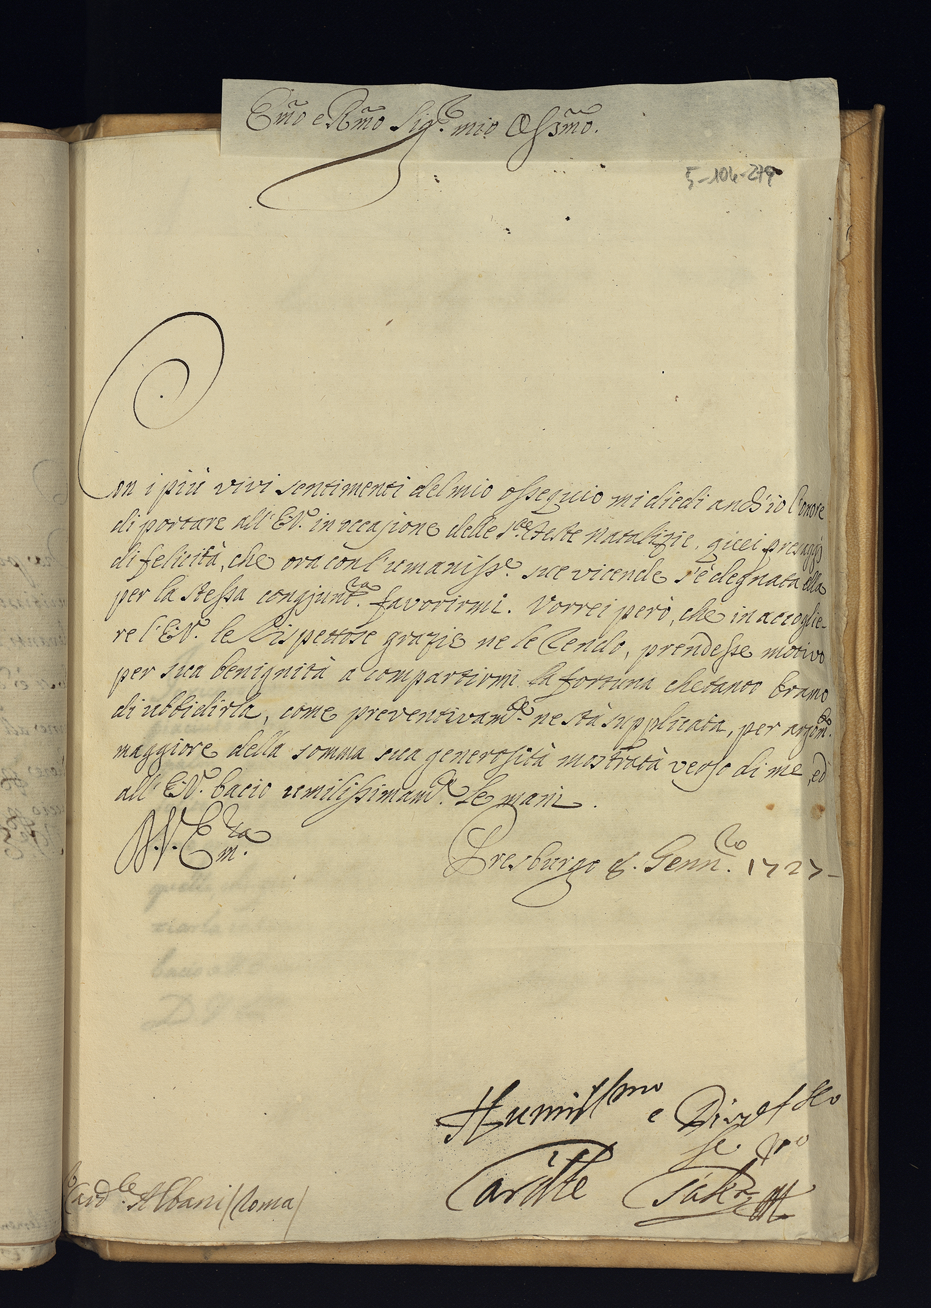 Em̃o e Rm̃o Sig.r mio Oss.mo.
5-104-279
Con i più vivi sentimenti del mio ossequio mi diedi anch'io l'onore
di portare all' E.V. in occasione delle S.te Feste Natalizie, quei presaggj
di felicità, che ora con l'umaniss.e sue vicende s'è degnata ella
per la stessa congiunt.ra favorirmi. Vorrei però, che in accoglie-
re l'E.V. le rispettose grazie ne le rendo, prendesse motivo
per sua benignità a compartirmi la fortuna che tanto bramo
di ubbidirla, come preventivam.te ne stà supplicata, per
maggiore della somma sua generosità mostrata verso di me, ed
all' E.V. bacio umilissimam.te le mani.
D. V. Em.za
Presburgo 8. Genn.ro 1727
Humiliss.mo e
Card.le
Card.le Albani (Roma)